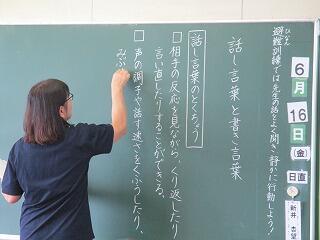 避難訓練では先生の話をよく聞き静かに行動しよう！
ひなん
6月16日(金)
日直
新井 志望
話し言葉と書き言葉
話し言葉のとくちょう
□相手の反応を見ながら、くり返したり
言い直したりすることができる。
□声の調子や話す速さをくふうしたり、
みぶ